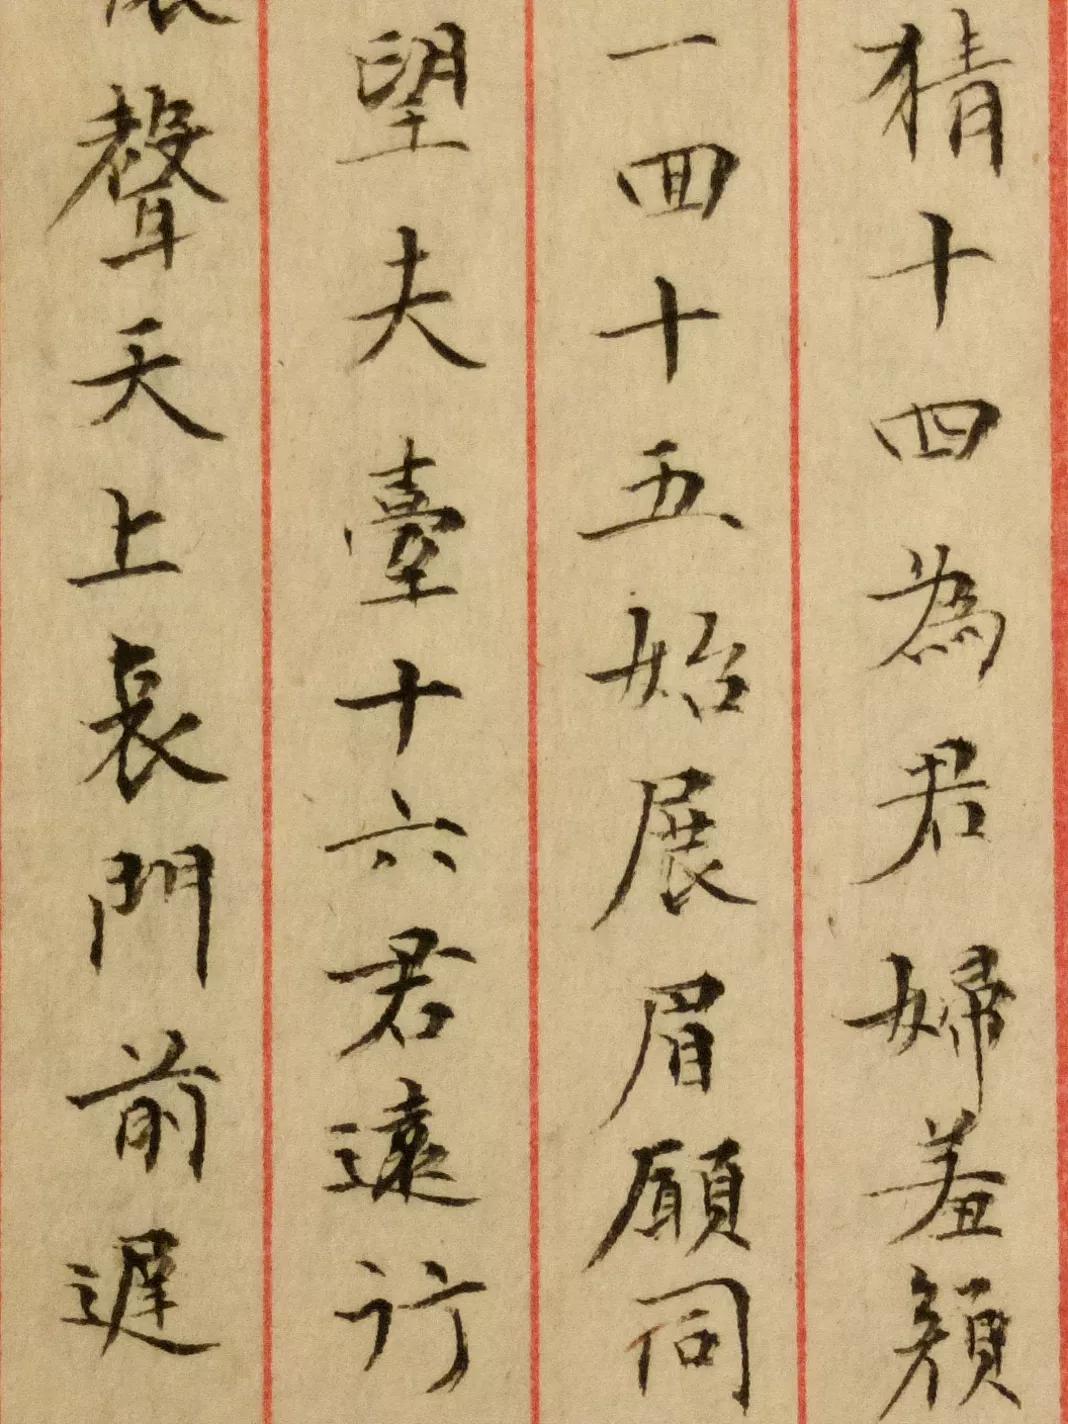 猜十四為君婦羞顏
一回十五始展眉願同
望夫臺十六君遠行
聲天上哀門前遲